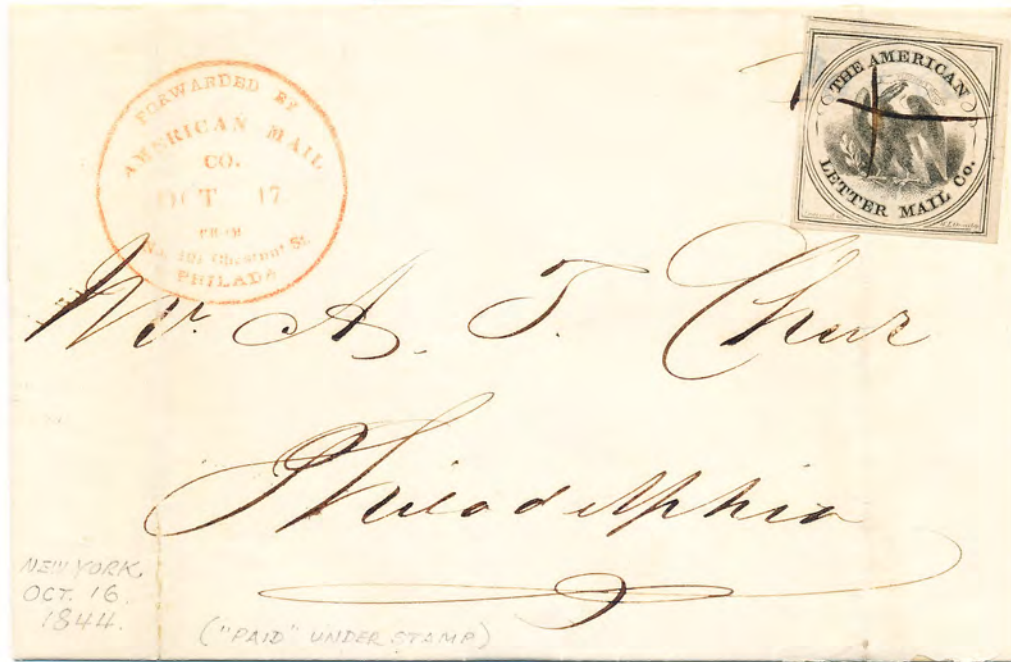 FORWARDED BY
AMERICAN MAIL
CO.
OCT 17
FROM
No. 101 Chestnut St.
PHILADA
THE AMERICAN
LETTER MAIL Co.
Mr. A. T. Chur
Philadelphia
NEW YORK,
OCT. 16.
1844.
("PAID" UNDER STAMP)